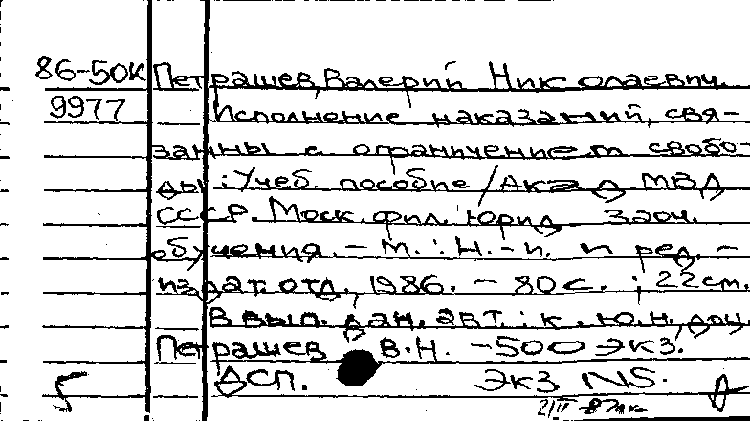 86-50К Петрашев, Валерий Николаевич.
9977 Исполнение наказаний, свя-
занных с ограничением свобо-
ды: Учеб. пособие / Акад. МВД
СССР. Моск. фил. юрид. заоч.
обучения. - М. : Н.-и. и ред. -
издат. отд., 1986. - 80 с. ; 22 см.
В вып. дан. авт.: к. ю. н., доц.
Петрашев В.Н. - 500 экз.
ДСП. Экз №5.
5